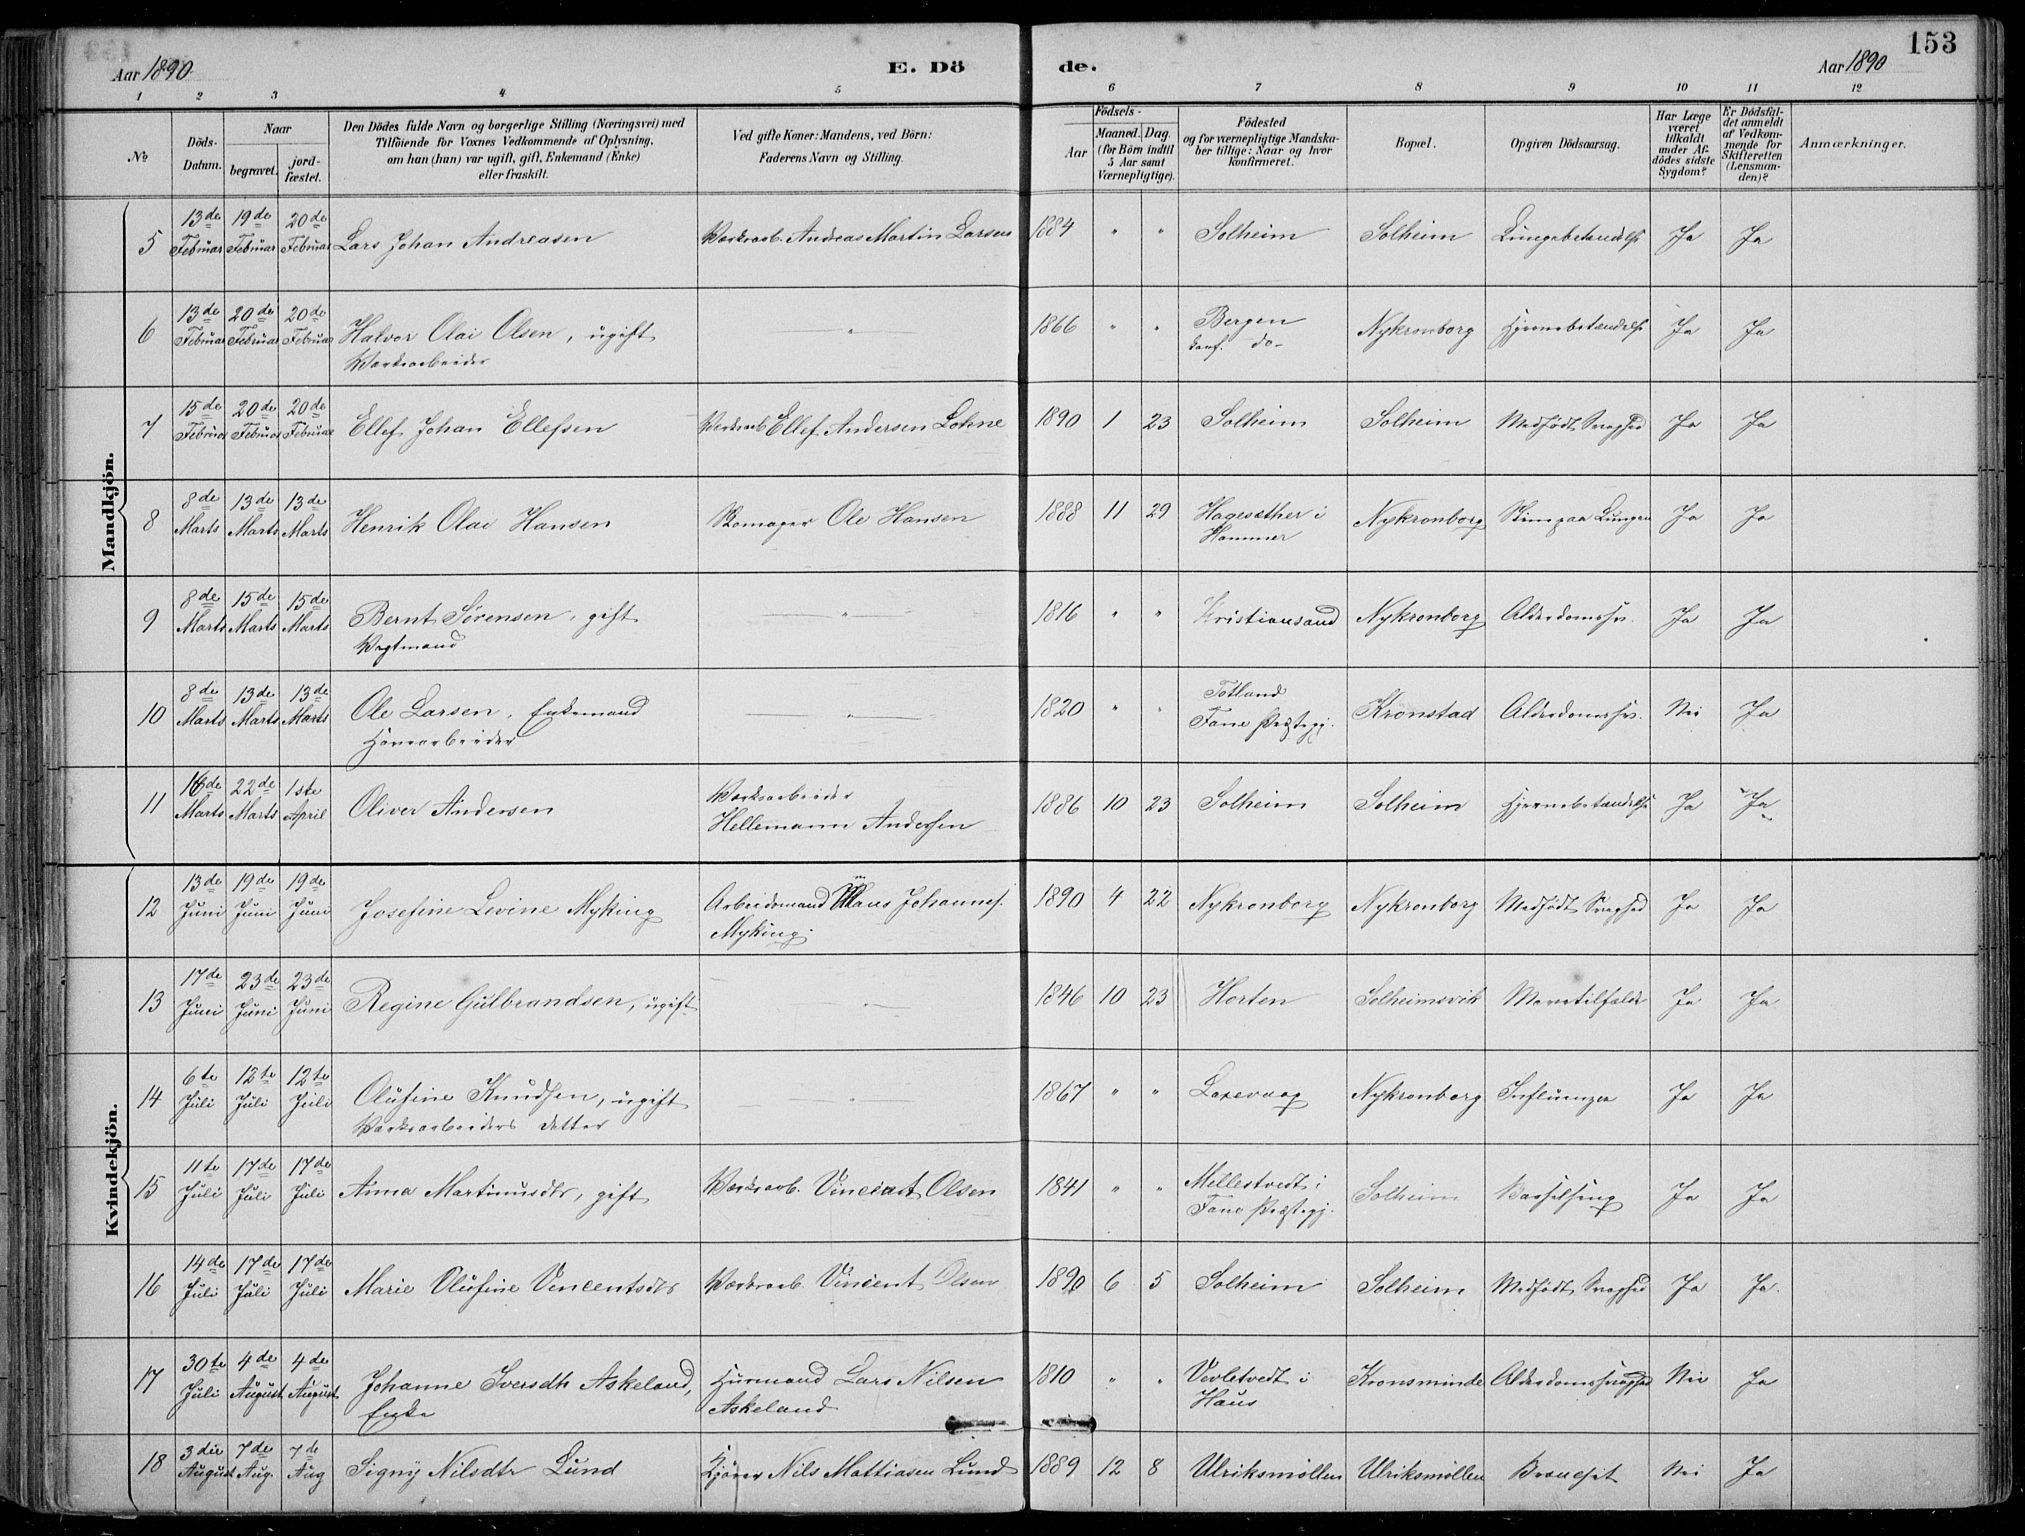 153
Aar 1890
E. Dö
de.
Aar 1890
1 2 3 4 5 6 7 8 9 10 11 12
No
Döds-
Datum.
Naar
begravet.
jord-
fæstet.
Den Dödes fulde Navn og borgerlige Stilling (Næringsvei) med
Tilföiende for Voxnes Vedkommende af Oplysning,
om han (hun) var ugift, gift, Enkemand (Enke)
eller fraskilt.
Ved gifte Koner: Mandens, ved Börn:
Faderens Navn og Stilling.
Födsels-
Aar
Maaned. Dag.
(for Börn indtil
5 Aar samt
Værnepligtige).
Födested
og for værnepligtige Mandska-
ber tillige: Naar og hvor
Konfirmeret.
Bopæl.
Opgiven Dödsaarsag.
Har Læge
været
tilkaldt
under Af-
dödes sidste
Sygdom?
Er Dödsfal-
det anmeldt
af Vedkom-
mende for
Skifteretten
(Lensman-
den)?
Anmærkninger.
Mandkjön.
5 13de Februar 19de Februar 20de Februar Lars Johan Andreasen Værksarb. Andreas Martin Larsen 1884 " " Solheim Solheim Lungebetændelse Ja Ja
6 13de Februar 20de Februar 20de Februar Halvor Olai Olsen, ugift " 1866 " " Bergen Nykronborg Hjernebetændelse Ja Ja
Værksarbeider konf. do-
7 15de Februar 20de Februar 20de Februar Ellef Johan Ellefsen Værksarb Ellef Andersen Lohne 1890 1 23 Solheim Solheim Medfödt Svaghed Ja Ja
8 8de Marts 13de Marts 13de Marts Henrik Olai Hansen Skomager Ole Hansen 1888 11 29 Hagesæther i Nykronborg Slim paa Lungen Ja Ja
Hammer
9 8de Marts 15de Marts 15de Marts Bernt Sørensen, gift " 1816 " " Kristiansand Nykronborg Alderdomssv. Ja Ja
Vagtmand
10 8de Marts 13de Marts 13de Marts Ole Larsen, Enkemand " 1820 " " Totland Kronstad Alderdomssv. Nei Ja
Fane Præstegj.
11 16de Marts 22de Marts 1ste April Oliver Andersen Værksarbeider 1886 10 23 Solheim Solheim Hjernebetændelse Ja Ja
Hellemann Andersen
Kvindekjön.
12 13de Juni 19de Juni 19de Juni Josefine Levine Myking Arbeidsmand Johannes. 1890 4 22 Nykronborg Nykronborg Medfödt Svaghed Ja Ja
Myking.
13 17de Juni 23de Juni 23de Juni Regine Gulbrandsen, ugift " 1846 10 23 Horten Solheimsvik Mavetilfælde Ja Ja
14 6te Juli 12te Juli 12te Juli Olufine Knudsen, ugift " 1867 " " Laxevaag Nykronborg Influenza Ja Ja
Værksarbeiders datter
15 11te Juli 17de Juli 17de Juli Anna Martinusdtr, gift Værksarb. Vincent Olsen 1841 " " Mellestvedt i Solheim Barselseng Ja Ja
Fane Præstegj.
16 14de Juli 17de Juli 17de Juli Marie Olufine Vincentsdtr Værksarb. Vincent Olsen 1890 6 5 Solheim Solheim Medfödt Svaghed Ja Ja.
17 30te Juli 4de August 4de August Johanne Iversdtr Askeland, Husmand Lars Nilsen 1810 " " i Kronsminde Alderdomssvaghed Nei Ja
Enke Askeland Haus
18 3die August 7de Aug. 7de Aug Signy Nilsdtr Lund Kjører Nils Mattiasen Lund 1889 12 8 Ulriksmøllen Ulriksmøllen Nei Ja